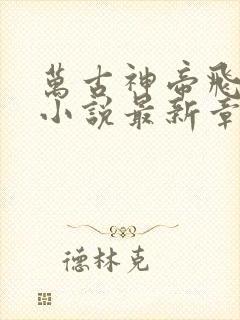 萬古神帝飛
小說最新章
德林克